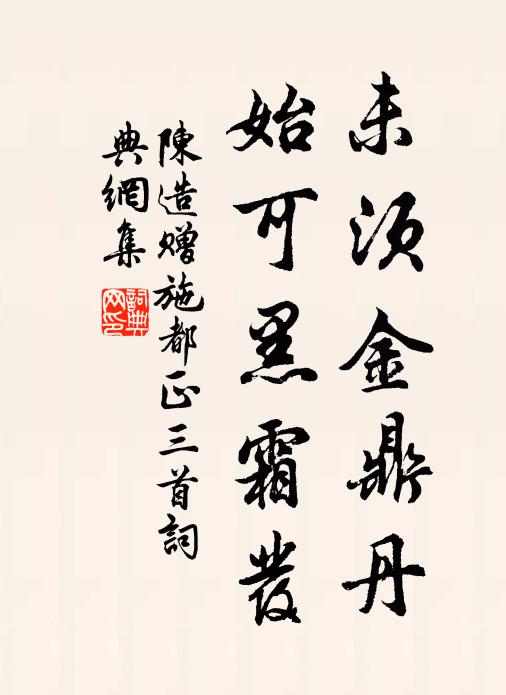 未須金鼎丹
始可黑霜發
陳造贈施都正三首詞
典網集
詞典
网印